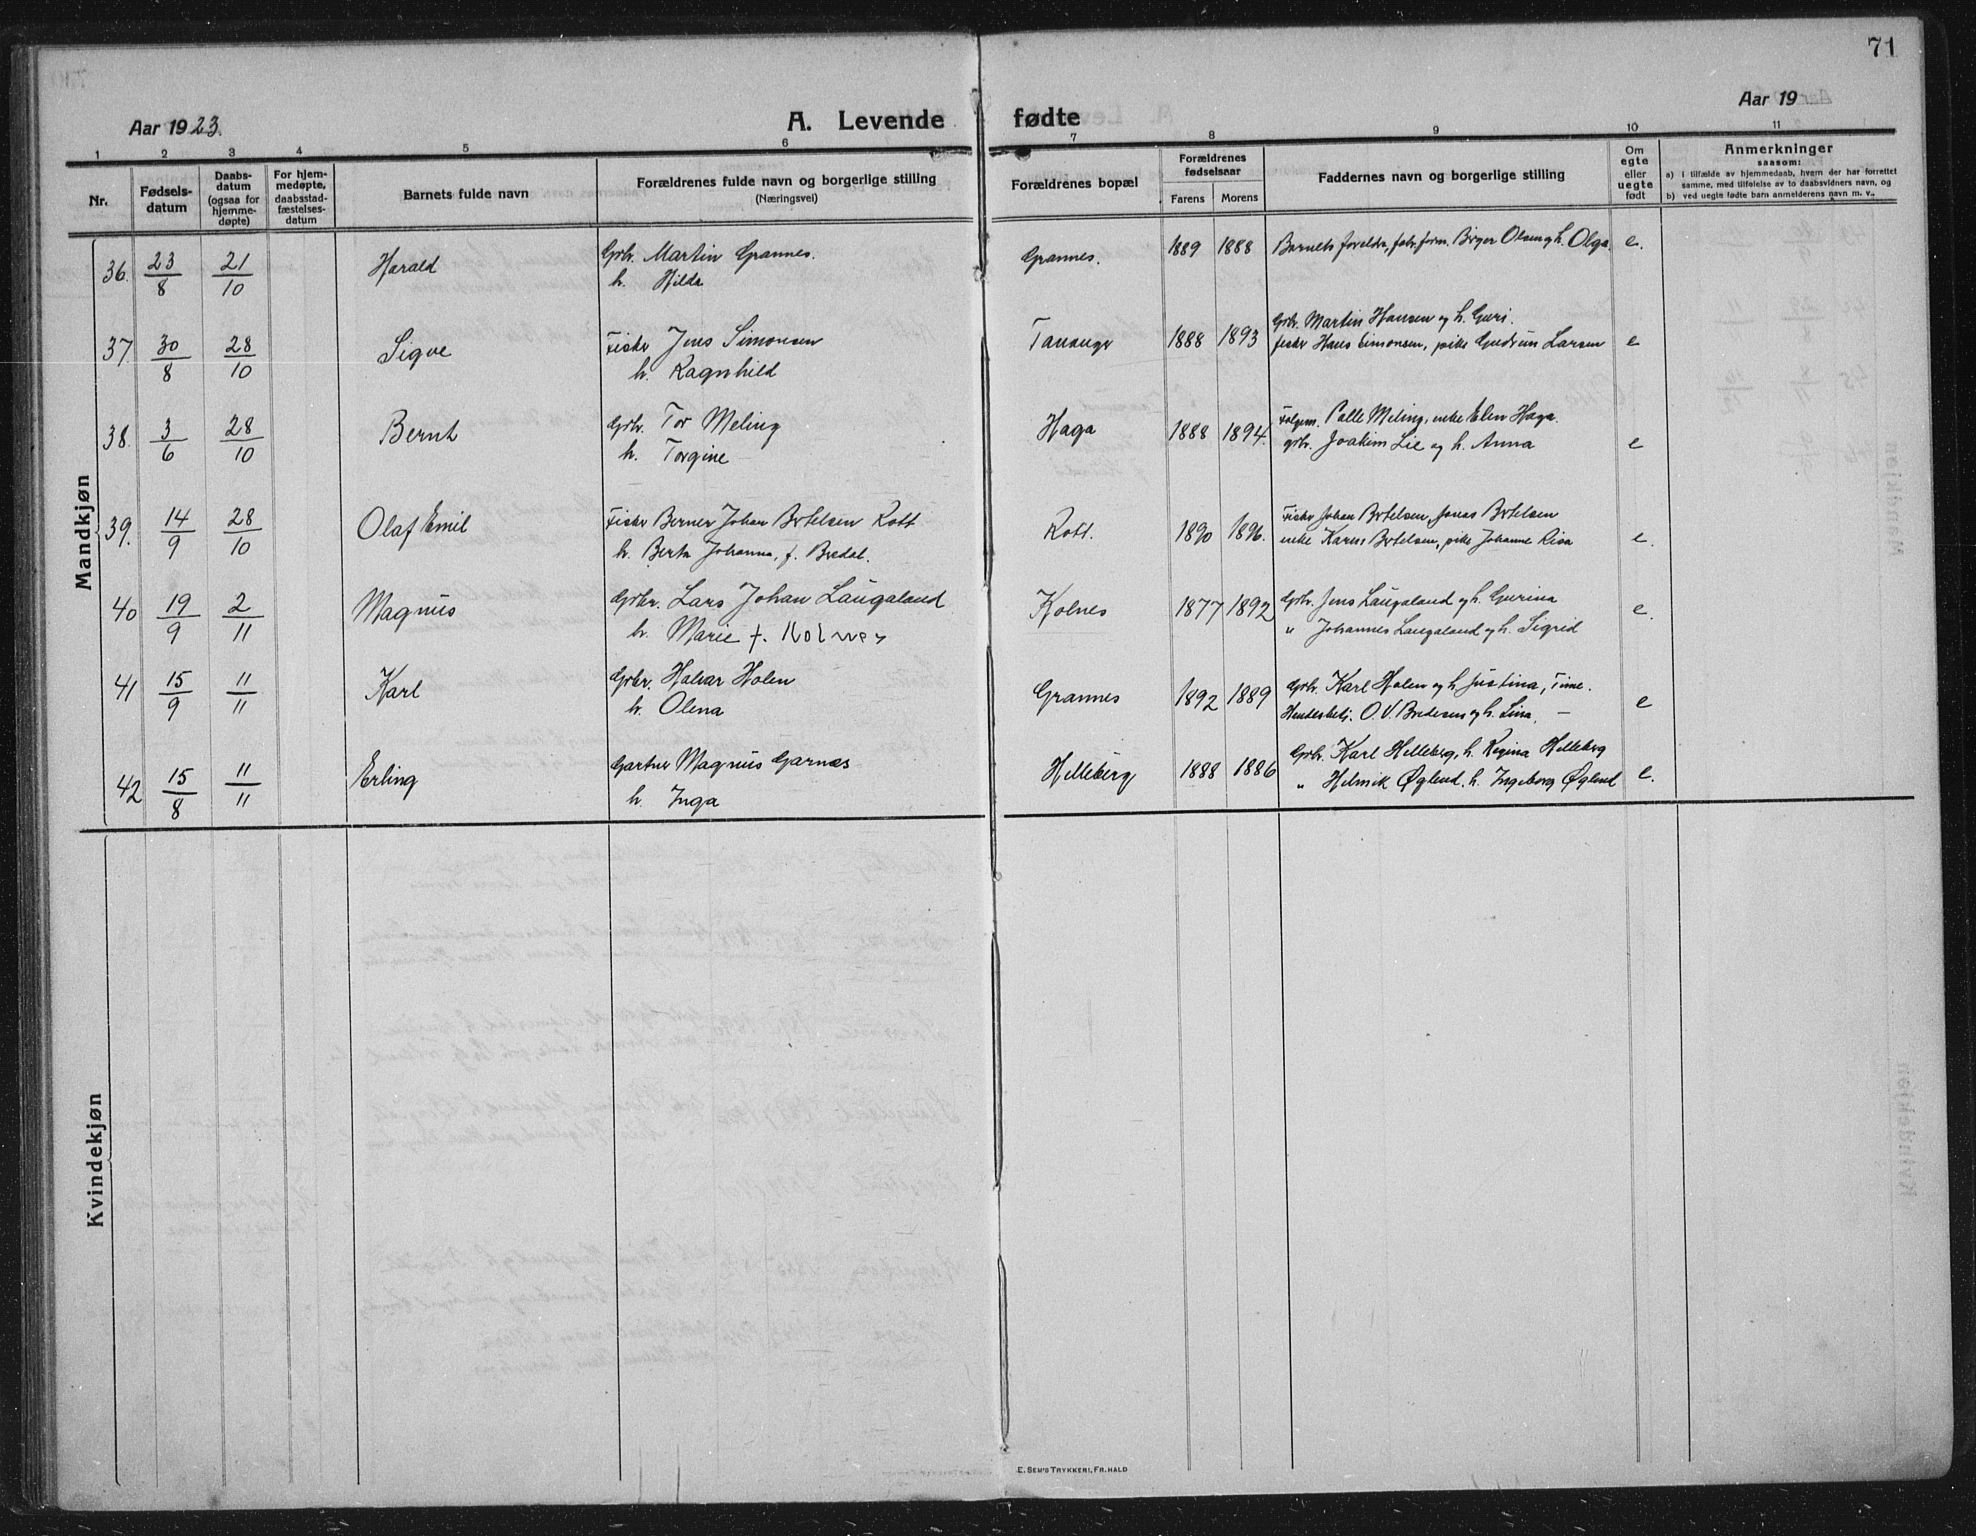 71
Aar 1923.
A. Levende fødte
Aar 19
1 2 3 4 5 6 7 8 9 10 11
Nr.
Fødsels-
datum
Daabs-
datum
(ogsaa for
hjemme-
døpte)
For hjem-
medøpte,
daabsstad-
fæstelses-
datum
Barnets fulde navn
Forældrenes fulde navn og borgerlige stilling
(Næringsvei)
Forældrenes bopæl
Forældrenes
fødselsaar
Farens Morens
Faddernes navn og borgerlige stilling
Om
egte
eller
uegte
født
Anmerkninger
saasom:
a) i tilfælde av hjemmedaab, hvem der har forrettet
samme, med tilføielse av to daabsvidners navn, og
b) ved uegte fødte barn anmelderens navn m. v.,
Mandkjøn
36. 23/8 21/10 Harald Gbr. Martin Grannes. Grannes. 1889 1888 Barnets foreldre, fabr. form. Birger Olsen og h. Olga. e.
h. Hilda
37. 30/8 28/10 Sigve Fisker Jens Simonsen Tananger 1888 1893 Gbr. Martin Hansen og h. Guri.
h. Ragnhild fisker Hans Simonsen, pike Gudrun Larsen e
38. 3/6 28/10 Bernt Gbr. Tor Meling Haga 1888 1894. Folgem. Palle Meling, enke Elen Haga.
h. Torgine gbr. Joakim Lie og h. Anna e
39. 14/9 28/10 Olaf Emil Fisker Berner Johan Bertelsen Rott Rott. 1890 1896. Fisker Johan Bertelsen, Jonas Bertelsen
h. Berta Johanna, f. Bredal. enke Karen Bertelsen, pike Johanne Risa e.
40 19/9 2/11 Magnus Gbr. Lars Johan Laugaland Kolnes 1877 1892 Gbr. Jens Laugaland og h. Gurina e.
h. Marie f. Kolnes " Johannes Laugaland og h. Sigrid
41 15/9 11/11 Karl Gbr. Halvar Holen Grannes 1892 1889 Gbr. Karl Holen og h. Justina, Time.
h. Olena Handelsbetj. O. V. Bredesen og h. Lina. — e
42 15/8 11/11 Erling Gartner Magnus Garnæs Helleberg 1888 1886 Gbr. Karl Helleberg, h. Regina Helleberg
h. Inga " Helmik Øglend, h. Ingeborg Øglend e.
Kvindekjøn
E. SEM'S TRYKKERI, FR.HALD